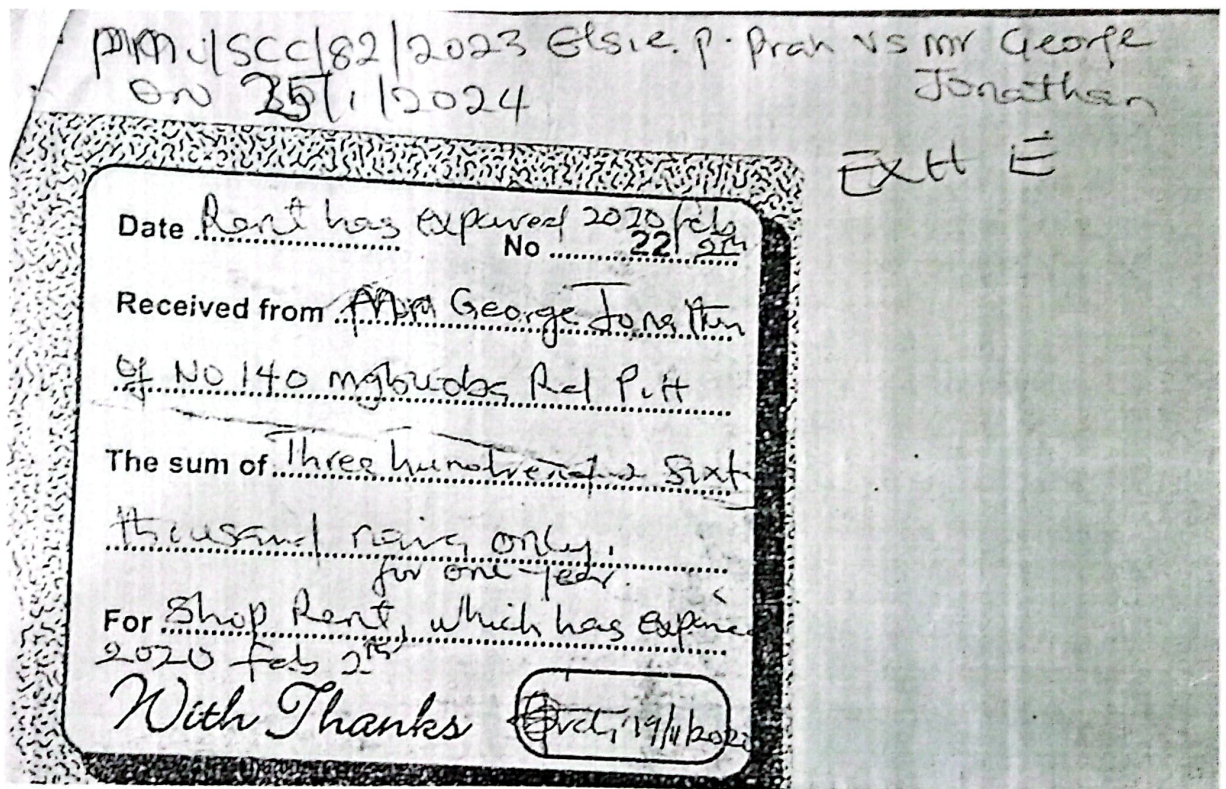 PMC/SCC/82/2023 Elsie. P. Prah VS mr George
Jonathan
ON 25/1/2024
EXH E
Date Rent has expired 2020 feb
No 22 2th
Received from Mr George Jonathan
of No 140 mgbuoba Rd P.H
The sum of Three hundred Sixty
thousand naira only.
for one-year.
For Shop Rent, which has expired
2020 feb 2th
With Thanks 19/11/202